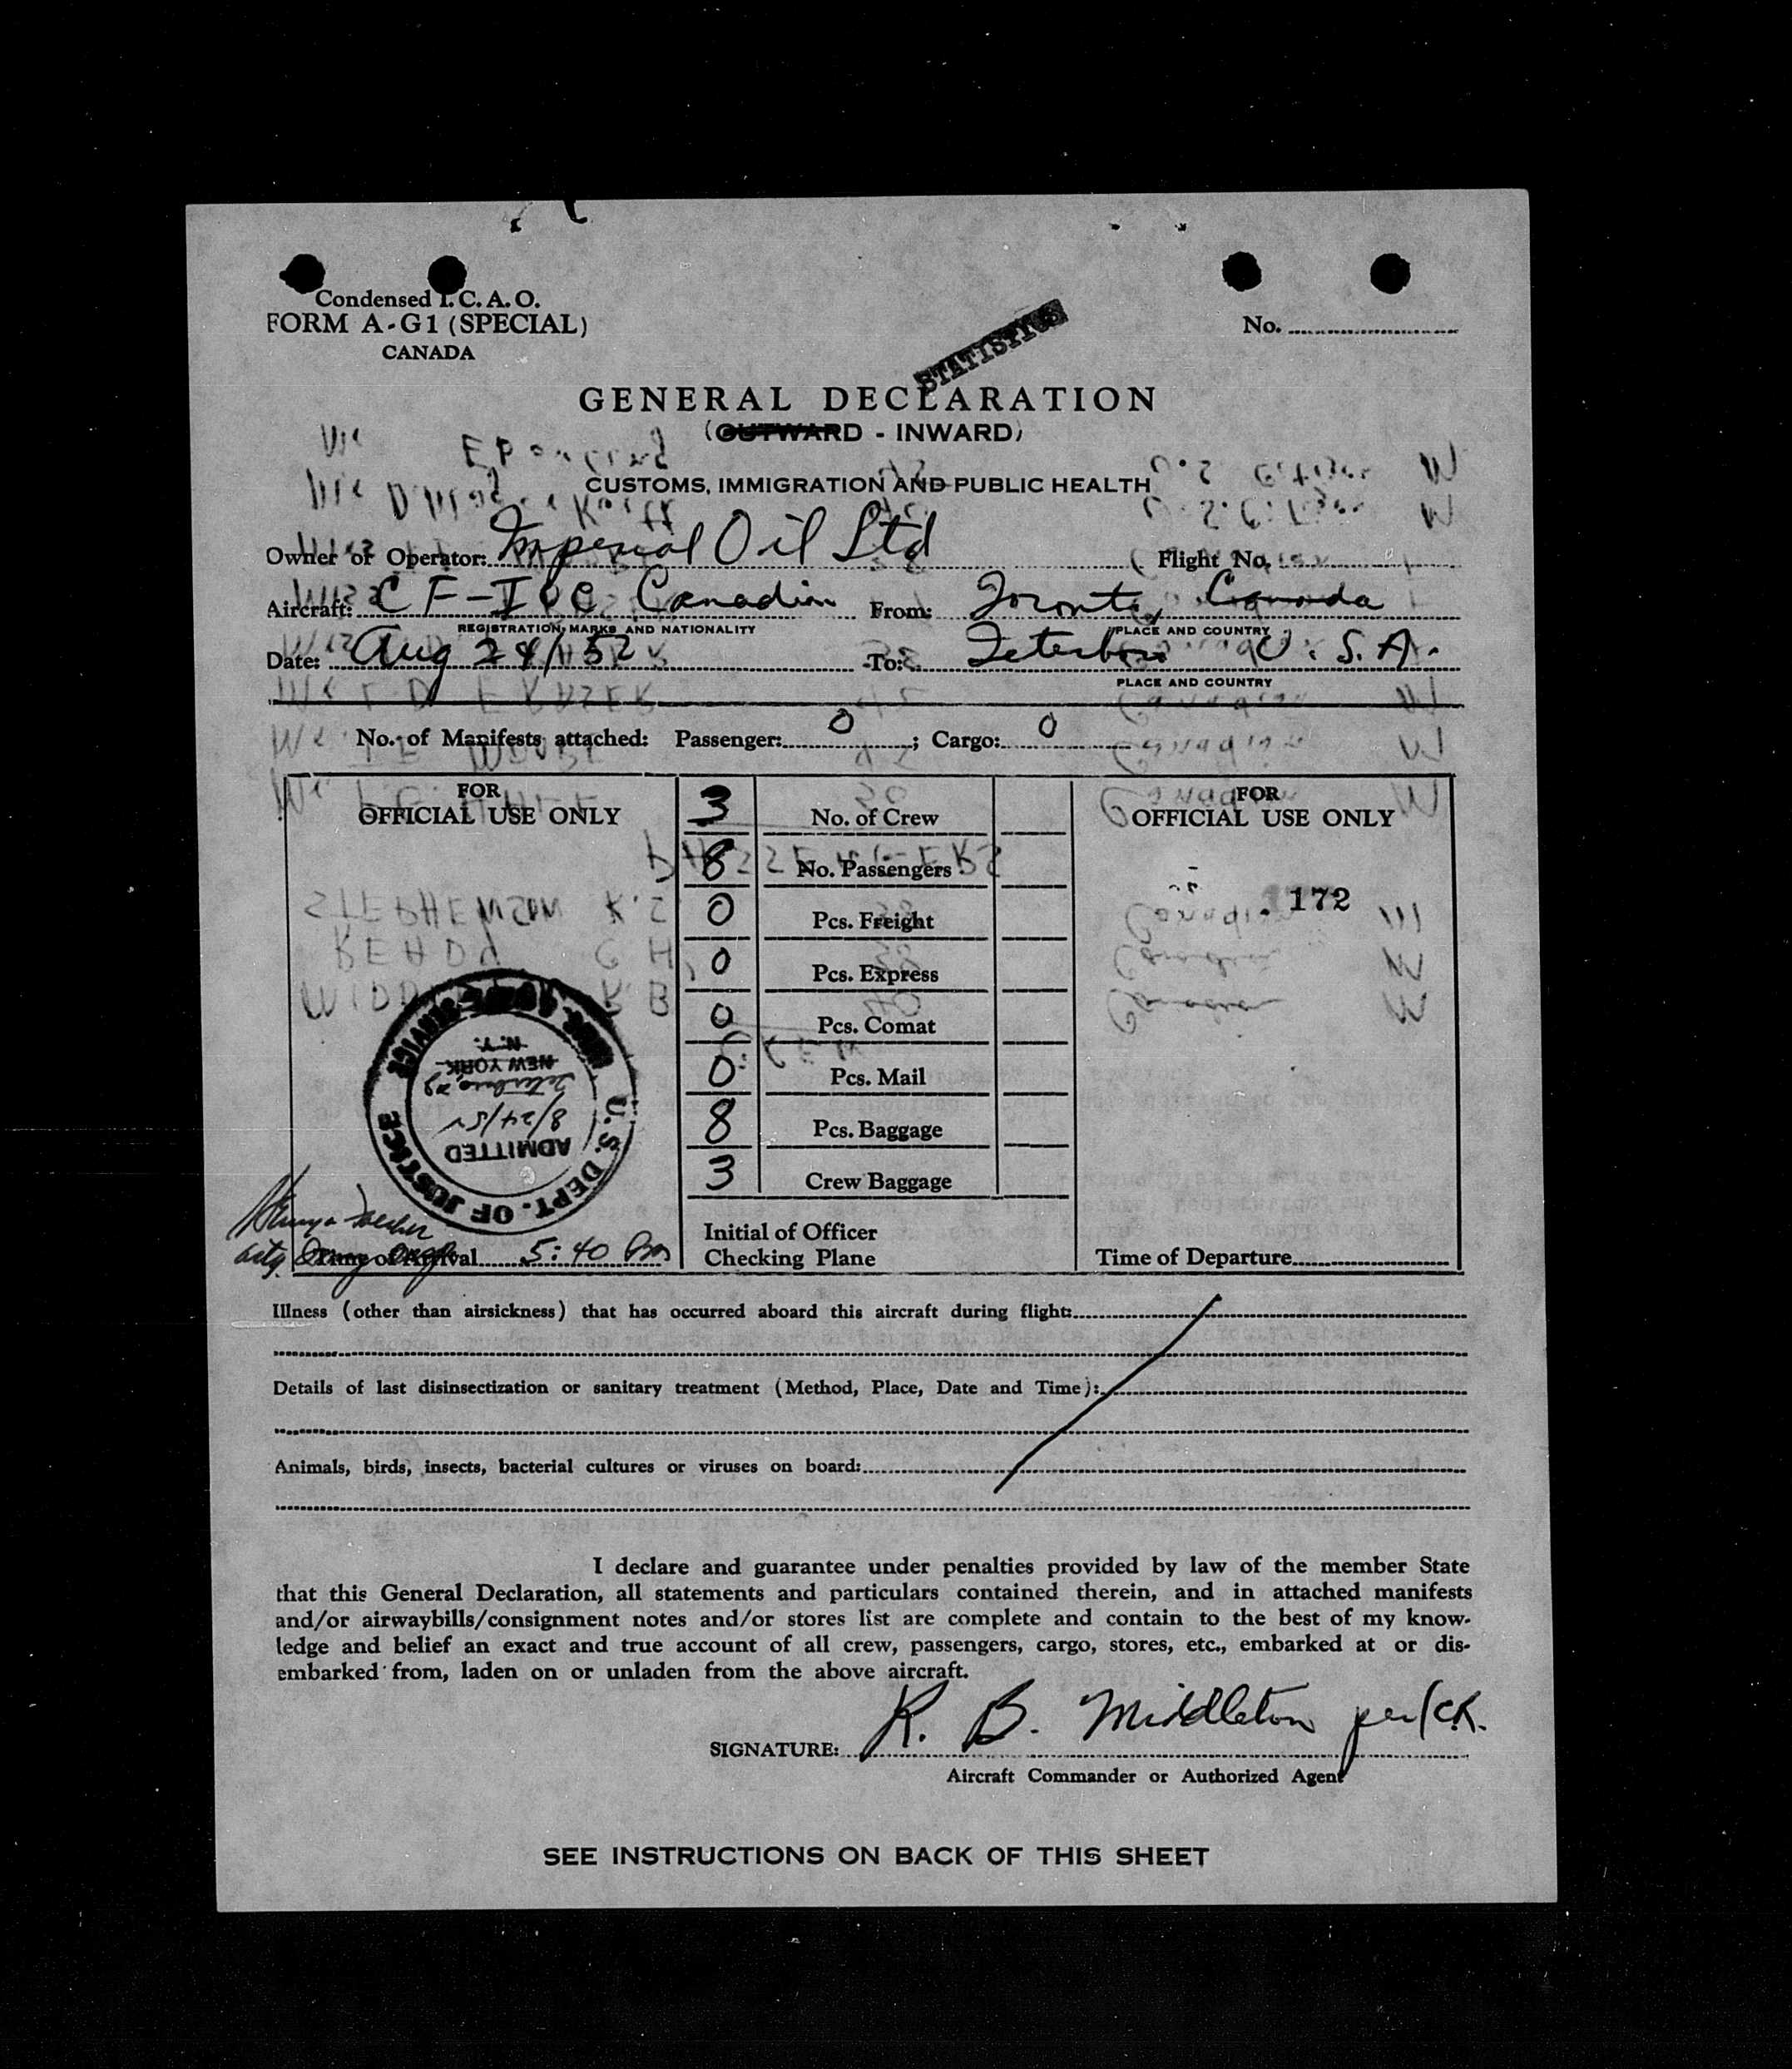 Condensed I.C.A.O.
FORM A-G1 (SPECIAL)
CANADA
No.
STATISTICS
GENERAL DECLARATION
(OUTWARD - INWARD)
CUSTOMS, IMMIGRATION AND PUBLIC HEALTH
Owner or Operator: Imperial Oil Ltd Flight No.
Aircraft: CF-IOC Canadian From: Toronto, Canada
REGISTRATION MARKS AND NATIONALITY PLACE AND COUNTRY
Date: Aug 24/52 To: Teterboro U.S.A.
PLACE AND COUNTRY
No. of Manifests attached: Passenger: 0; Cargo: 0
FOR OFFICIAL USE ONLY
3 No. of Crew
8 No. Passengers
0 Pcs. Freight
0 Pcs. Express
0 Pcs. Comat
0 Pcs. Mail
8 Pcs. Baggage
3 Crew Baggage
Initial of Officer
Checking Plane
FOR OFFICIAL USE ONLY
172
U.S. DEPT. OF JUSTICE
ADMITTED
8/24/52
NEW YORK
N.Y.
Time of Arrival 5:40 Pm
Time of Departure
Illness (other than airsickness) that has occurred aboard this aircraft during flight:
Details of last disinsectization or sanitary treatment (Method, Place, Date and Time):
Animals, birds, insects, bacterial cultures or viruses on board:
I declare and guarantee under penalties provided by law of the member State
that this General Declaration, all statements and particulars contained therein, and in attached manifests
and/or airwaybills/consignment notes and/or stores list are complete and contain to the best of my know-
ledge and belief an exact and true account of all crew, passengers, cargo, stores, etc., embarked at or dis-
embarked from, laden on or unladen from the above aircraft.
SIGNATURE: R. B. Middleton
Aircraft Commander or Authorized Agent
SEE INSTRUCTIONS ON BACK OF THIS SHEET